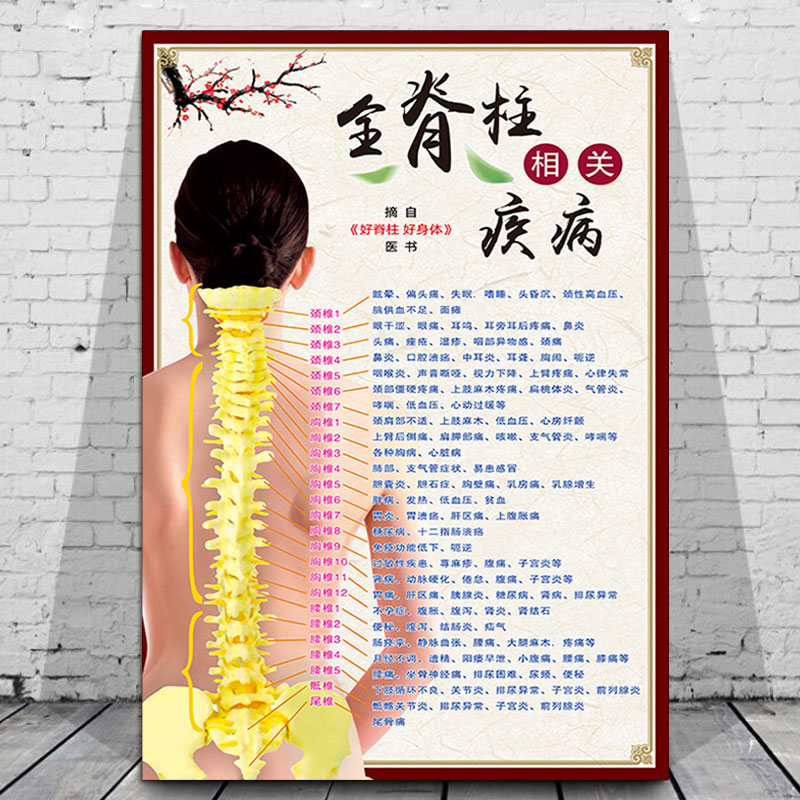 全脊柱
相关
疾病
摘自
《好脊柱 好身体》
医书
颈椎1
颈椎2
颈椎3
颈椎4
颈椎5
颈椎6
颈椎7
胸椎1
胸椎2
胸椎3
胸椎4
胸椎5
胸椎6
胸椎7
胸椎8
胸椎9
胸椎10
胸椎11
胸椎12
腰椎1
腰椎2
腰椎3
腰椎4
腰椎5
骶椎
尾椎
眩晕、偏头痛、失眠、嗜睡、头昏沉、颈性高血压、
脑供血不足、面瘫
眼干涩、眼痛、耳鸣、耳旁耳后疼痛、鼻炎
头痛、痤疮、湿疹、咽部异物感、颈痛
鼻炎、口腔溃疡、中耳炎、耳聋、胸闷、呃逆
咽喉炎、声音嘶哑、视力下降、上臂疼痛、心律失常
颈部僵硬疼痛、上肢麻木疼痛、扁桃体炎、气管炎、
哮喘、低血压、心动过缓等
颈肩部不适、上肢麻木、低血压、心房纤颤
上臂后侧痛、肩胛部痛、咳嗽、支气管炎、哮喘等
各种胸病、心脏病
肺部、支气管症状、易患感冒
胆囊炎、胆石症、胸壁痛、乳房痛、乳腺增生
肝病、发热、低血压、贫血
胃炎、胃溃疡、肝区痛、上腹胀痛
糖尿病、十二指肠溃疡
免疫功能低下、呃逆
过敏性疾患、荨麻疹、腹痛、子宫炎等
肾病、动脉硬化、倦怠、腹痛、子宫炎等
胃痛、肝区痛、胰腺炎、糖尿病、肾病、排尿异常
不孕症、腹胀、腹泻、肾炎、肾结石
便秘、腹泻、结肠炎、疝气
肠痉挛、静脉曲张、腰痛、大腿麻木、疼痛等
月经不调、遗精、阳痿早泄、小腹痛、腰痛、膝痛等
腰痛、坐骨神经痛、排尿困难、尿频、便秘
下肢循环不良、关节炎、排尿异常、子宫炎、前列腺炎
骶髂关节炎、排尿异常、子宫炎、前列腺炎
尾骨痛